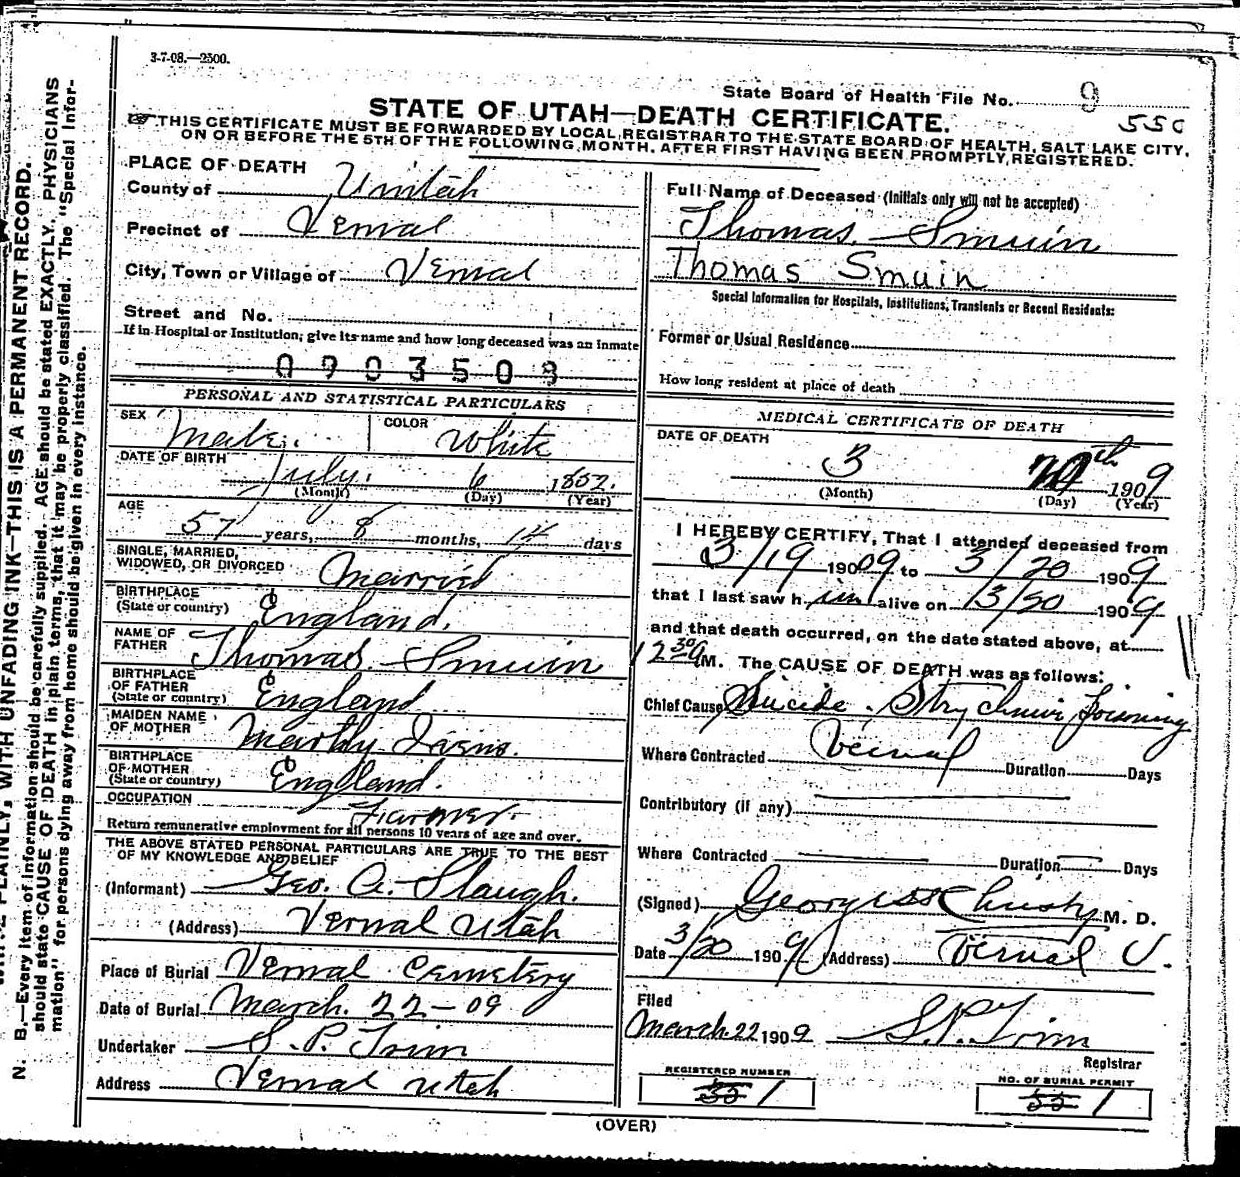 3-7-08.—2500.
State Board of Health File No. 9
550
STATE OF UTAH—DEATH CERTIFICATE.
THIS CERTIFICATE MUST BE FORWARDED BY LOCAL REGISTRAR TO THE STATE BOARD OF HEALTH, SALT LAKE CITY,
ON OR BEFORE THE 5TH OF THE FOLLOWING MONTH, AFTER FIRST HAVING BEEN PROMPTLY REGISTERED.
PLACE OF DEATH
County of Uintah
Precinct of Vernal
City, Town or Village of Vernal
Street and No.
If in Hospital or Institution, give its name and how long deceased was an inmate
0903508
PERSONAL AND STATISTICAL PARTICULARS
SEX Male. COLOR White
DATE OF BIRTH July. 6 1852.
(Month) (Day) (Year)
AGE
57 years, 8 months, 14 days
SINGLE, MARRIED,
WIDOWED, OR DIVORCED Married
BIRTHPLACE
(State or country) England.
NAME OF
FATHER Thomas Smuin
BIRTHPLACE
OF FATHER
(State or country) England
MAIDEN NAME
OF MOTHER
BIRTHPLACE
OF MOTHER
(State or country) England.
OCCUPATION Farmer.
Return remunerative employment for all persons 10 years of age and over.
THE ABOVE STATED PERSONAL PARTICULARS ARE TRUE TO THE BEST
OF MY KNOWLEDGE AND BELIEF
(Informant) Geo. A. Slaugh.
(Address) Vernal Utah
Place of Burial Vernal Cemetery
Date of Burial March. 22-09
Undertaker S. P. Trim
Address Vernal Utah
Full Name of Deceased (Initials only will not be accepted)
Thomas Smuin
Thomas Smuin
Special Information for Hospitals, Institutions, Transients or Recent Residents:
Former or Usual Residence
How long resident at place of death
MEDICAL CERTIFICATE OF DEATH
DATE OF DEATH
3 20th 1909
(Month) (Day) (Year)
I HEREBY CERTIFY, That I attended deceased from
3/19 19009 to 3/20 1909
that I last saw him alive on 3/20 1909
and that death occurred, on the date stated above, at
12 30 a M. The CAUSE OF DEATH was as follows:
Chief Cause Suicide. Strychnine Poisoning
Where Contracted Vernal Duration Days
Contributory (if any)
Where Contracted Duration Days
(Signed) M. D.
Date 3/20 1909 (Address) Vernal U.
Filed
March 22 1909 S.P. Trim
Registrar
REGISTERED NUMBER
55 1
NO. OF BURIAL PERMIT
55 1
(OVER)
WRITE PLAINLY, WITH UNFADING INK—THIS IS A PERMANENT RECORD.
N. B.—Every item of information should be carefully supplied. AGE should be stated EXACTLY. PHYSICIANS
should state CAUSE OF DEATH in plain terms, that it may be properly classified. The "Special Infor-
mation" for persons dying away from home should be given in every instance.